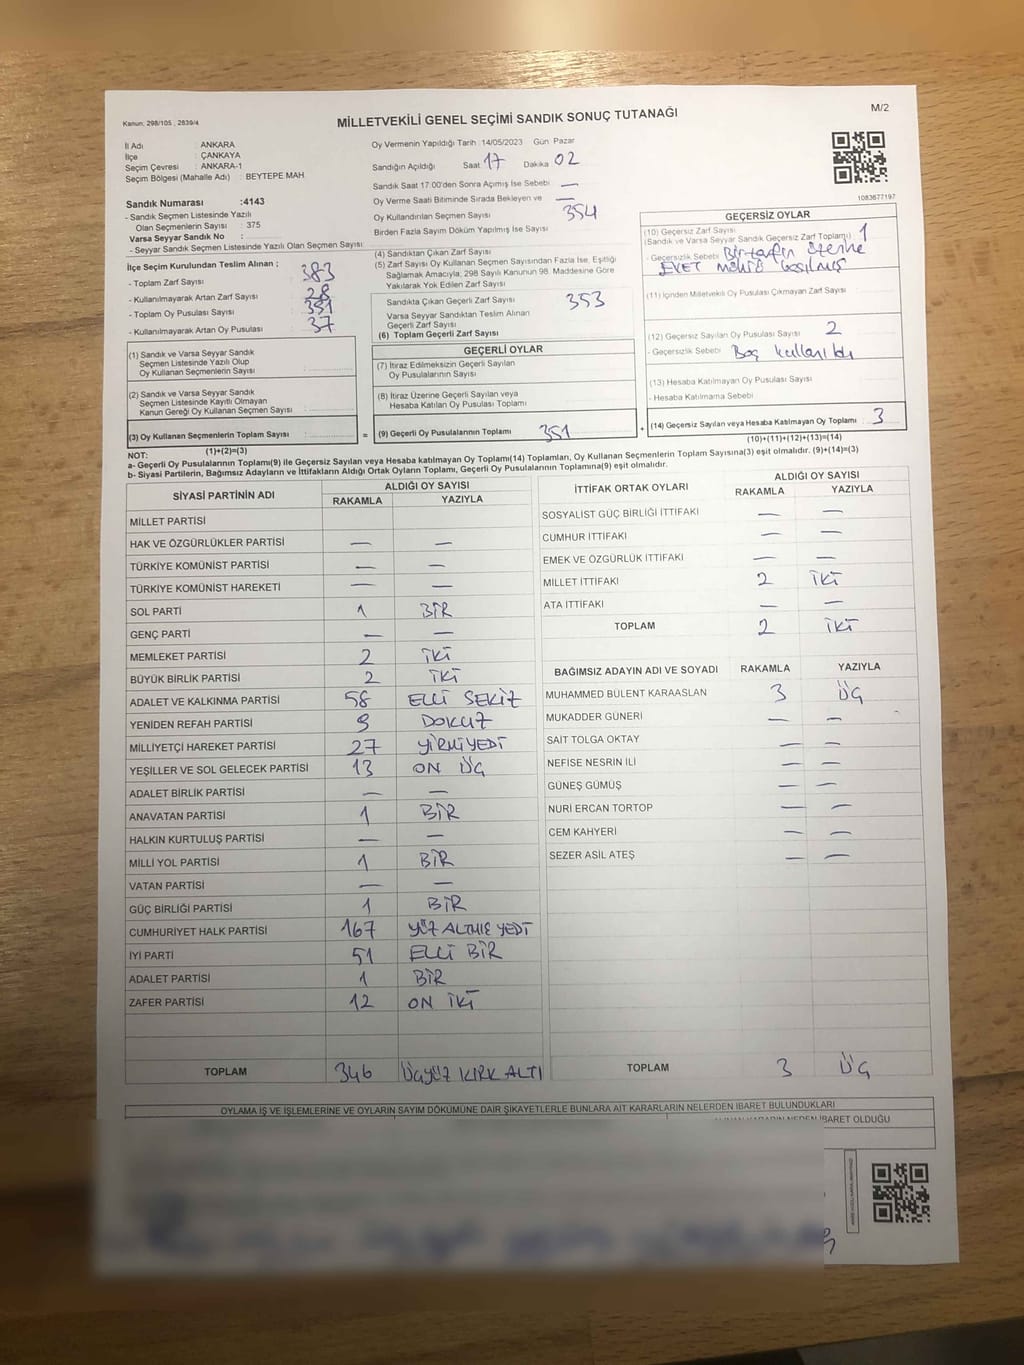 Kanun; 298/105 , 2839/4
MİLLETVEKİLİ GENEL SEÇİMİ SANDIK SONUÇ TUTANAĞI
M/2
İl Adı : ANKARA
İlçe : ÇANKAYA
Seçim Çevresi : ANKARA-1
Seçim Bölgesi (Mahalle Adı) : BEYTEPE MAH.
Sandık Numarası :4143
- Sandık Seçmen Listesinde Yazılı
Olan Seçmenlerin Sayısı : 375
Varsa Seyyar Sandık No :
- Seyyar Sandık Seçmen Listesinde Yazılı Olan Seçmen Sayısı:
İlçe Seçim Kurulundan Teslim Alınan ;
- Toplam Zarf Sayısı : 383
- Kullanılmayarak Artan Zarf Sayısı : 28
- Toplam Oy Pusulası Sayısı : 391
- Kullanılmayarak Artan Oy Pusulası : 37
(1) Sandık ve Varsa Seyyar Sandık
Seçmen Listesinde Yazılı Olup
Oy Kullanan Seçmenlerin Sayısı :
(2) Sandık ve Varsa Seyyar Sandık
Seçmen Listesinde Kayıtlı Olmayan
Kanun Gereği Oy Kullanan Seçmen Sayısı :
(3) Oy Kullanan Seçmenlerin Toplam Sayısı :
(1)+(2)=(3)
Oy Vermenin Yapıldığı Tarih :14/05/2023 Gün Pazar
Sandığın Açıldığı Saat 17 Dakika 02
Sandık Saat 17:00'den Sonra Açımış İse Sebebi —
Oy Verme Saati Bitiminde Sırada Bekleyen ve —
Oy Kullandırılan Seçmen Sayısı 354
Birden Fazla Sayım Döküm Yapılmış İse Sayısı
(4) Sandıktan Çıkan Zarf Sayısı
(5) Zarf Sayısı Oy Kullanan Seçmen Sayısından Fazla İse, Eşitliği
Sağlamak Amacıyla; 298 Sayılı Kanunun 98. Maddesine Göre
Yakılarak Yok Edilen Zarf Sayısı
Sandıkta Çıkan Geçerli Zarf Sayısı 353
Varsa Seyyar Sandıktan Teslim Alınan
Geçerli Zarf Sayısı
(6) Toplam Geçerli Zarf Sayısı
GEÇERLİ OYLAR
(7) İtiraz Edilmeksizin Geçerli Sayılan
Oy Pusulalarının Sayısı
(8) İtiraz Üzerine Geçerli Sayılan veya
Hesaba Katılan Oy Pusulası Toplamı
= (9) Geçerli Oy Pusulalarının Toplamı 351
1083677197
GEÇERSİZ OYLAR
(10) Geçersiz Zarf Sayısı
(Sandık ve Varsa Seyyar Sandık Geçersiz Zarf Toplamı) 1
- Geçersizlik Sebebi Bir zarfın üzerine
EVET mührü basılmış
(11) İçinden Milletvekili Oy Pusulası Çıkmayan Zarf Sayısı :
(12) Geçersiz Sayılan Oy Pusulası Sayısı 2
- Geçersizlik Sebebi Boş kullanıldı
(13) Hesaba Katılmayan Oy Pusulası Sayısı
- Hesaba Katılmama Sebebi
+ (14) Geçersiz Sayılan veya Hesaba Katılmayan Oy Toplamı : 3
(10)+(11)+(12)+(13)=(14)
NOT:
a- Geçerli Oy Pusulalarının Toplamı(9) ile Geçersiz Sayılan veya Hesaba katılmayan Oy Toplamı(14) Toplamları, Oy Kullanan Seçmenlerin Toplam Sayısına(3) eşit olmalıdır. (9)+(14)=(3)
b- Siyasi Partilerin, Bağımsız Adayların ve İttifakların Aldığı Ortak Oyların Toplamı, Geçerli Oy Pusulalarının Toplamına(9) eşit olmalıdır.
SİYASİ PARTİNİN ADI ALDIĞI OY SAYISI
RAKAMLA YAZIYLA
MİLLET PARTİSİ
HAK VE ÖZGÜRLÜKLER PARTİSİ — —
TÜRKİYE KOMÜNİST PARTİSİ — —
TÜRKİYE KOMÜNİST HAREKETİ — —
SOL PARTİ 1 BİR
GENÇ PARTİ — —
MEMLEKET PARTİSİ 2 İKİ
BÜYÜK BİRLİK PARTİSİ 2 İKİ
ADALET VE KALKINMA PARTİSİ 58 ELLİ SEKİZ
YENİDEN REFAH PARTİSİ 9 DOKUZ
MİLLİYETÇİ HAREKET PARTİSİ 27 YİRMİ YEDİ
YEŞİLLER VE SOL GELECEK PARTİSİ 13 ON ÜÇ
ADALET BİRLİK PARTİSİ — —
ANAVATAN PARTİSİ 1 BİR
HALKIN KURTULUŞ PARTİSİ — —
MİLLİ YOL PARTİSİ 1 BİR
VATAN PARTİSİ — —
GÜÇ BİRLİĞİ PARTİSİ 1 BİR
CUMHURİYET HALK PARTİSİ 167 YÜZ ALTMIŞ YEDİ
İYİ PARTİ 51 ELLİ BİR
ADALET PARTİSİ 1 BİR
ZAFER PARTİSİ 12 ON İKİ
TOPLAM 346 ÜÇYÜZ KIRK ALTI
İTTİFAK ORTAK OYLARI ALDIĞI OY SAYISI
RAKAMLA YAZIYLA
SOSYALİST GÜÇ BİRLİĞİ İTTİFAKI — —
CUMHUR İTTİFAKI — —
EMEK VE ÖZGÜRLÜK İTTİFAKI — —
MİLLET İTTİFAKI 2 İKİ
ATA İTTİFAKI — —
TOPLAM 2 İKİ
BAĞIMSIZ ADAYIN ADI VE SOYADI RAKAMLA YAZIYLA
MUHAMMED BÜLENT KARAASLAN 3 ÜÇ
MUKADDER GÜNERİ — —
SAİT TOLGA OKTAY — —
NEFİSE NESRİN İLİ — —
GÜNEŞ GÜMÜŞ — —
NURİ ERCAN TORTOP — —
CEM KAHYERİ — —
SEZER ASİL ATEŞ — —
TOPLAM 3 ÜÇ
OYLAMA İŞ VE İŞLEMLERİNE VE OYLARIN SAYIM DÖKÜMÜNE DAİR ŞİKAYETLERLE BUNLARA AİT KARARLARIN NELERDEN İBARET BULUNDUKLARI
ALINAN KARARIN NEDEN İBARET OLDUĞU